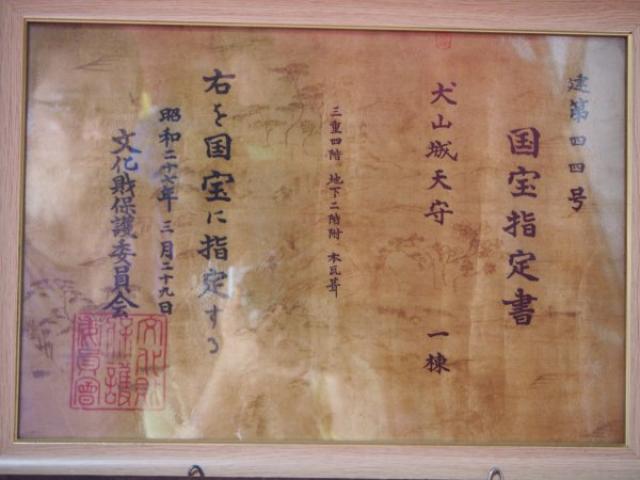 建第四四号
国宝指定書
犬山城天守 一棟
三重四階 地下二階附 本瓦葺
右を国宝に指定する
昭和二十七年三月二十九日
文化財保護委員会
文化財
保護
委員會